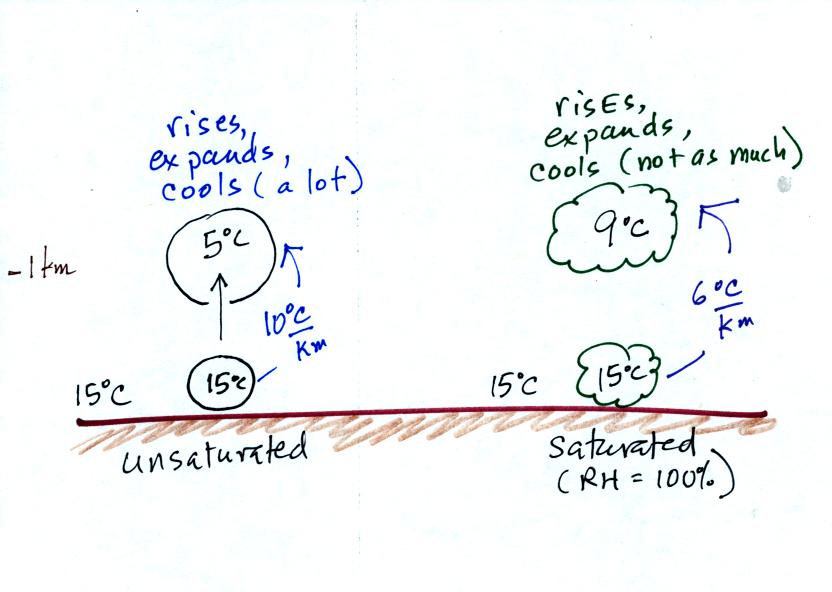 rises,
expands,
cools (a lot)
5°C
10°C
km
15°C
15°C
unsaturated
-1 km
risEs,
expands,
cools (not as much)
9°C
6°C
km
15°C
15°C
saturated
(RH = 100%)